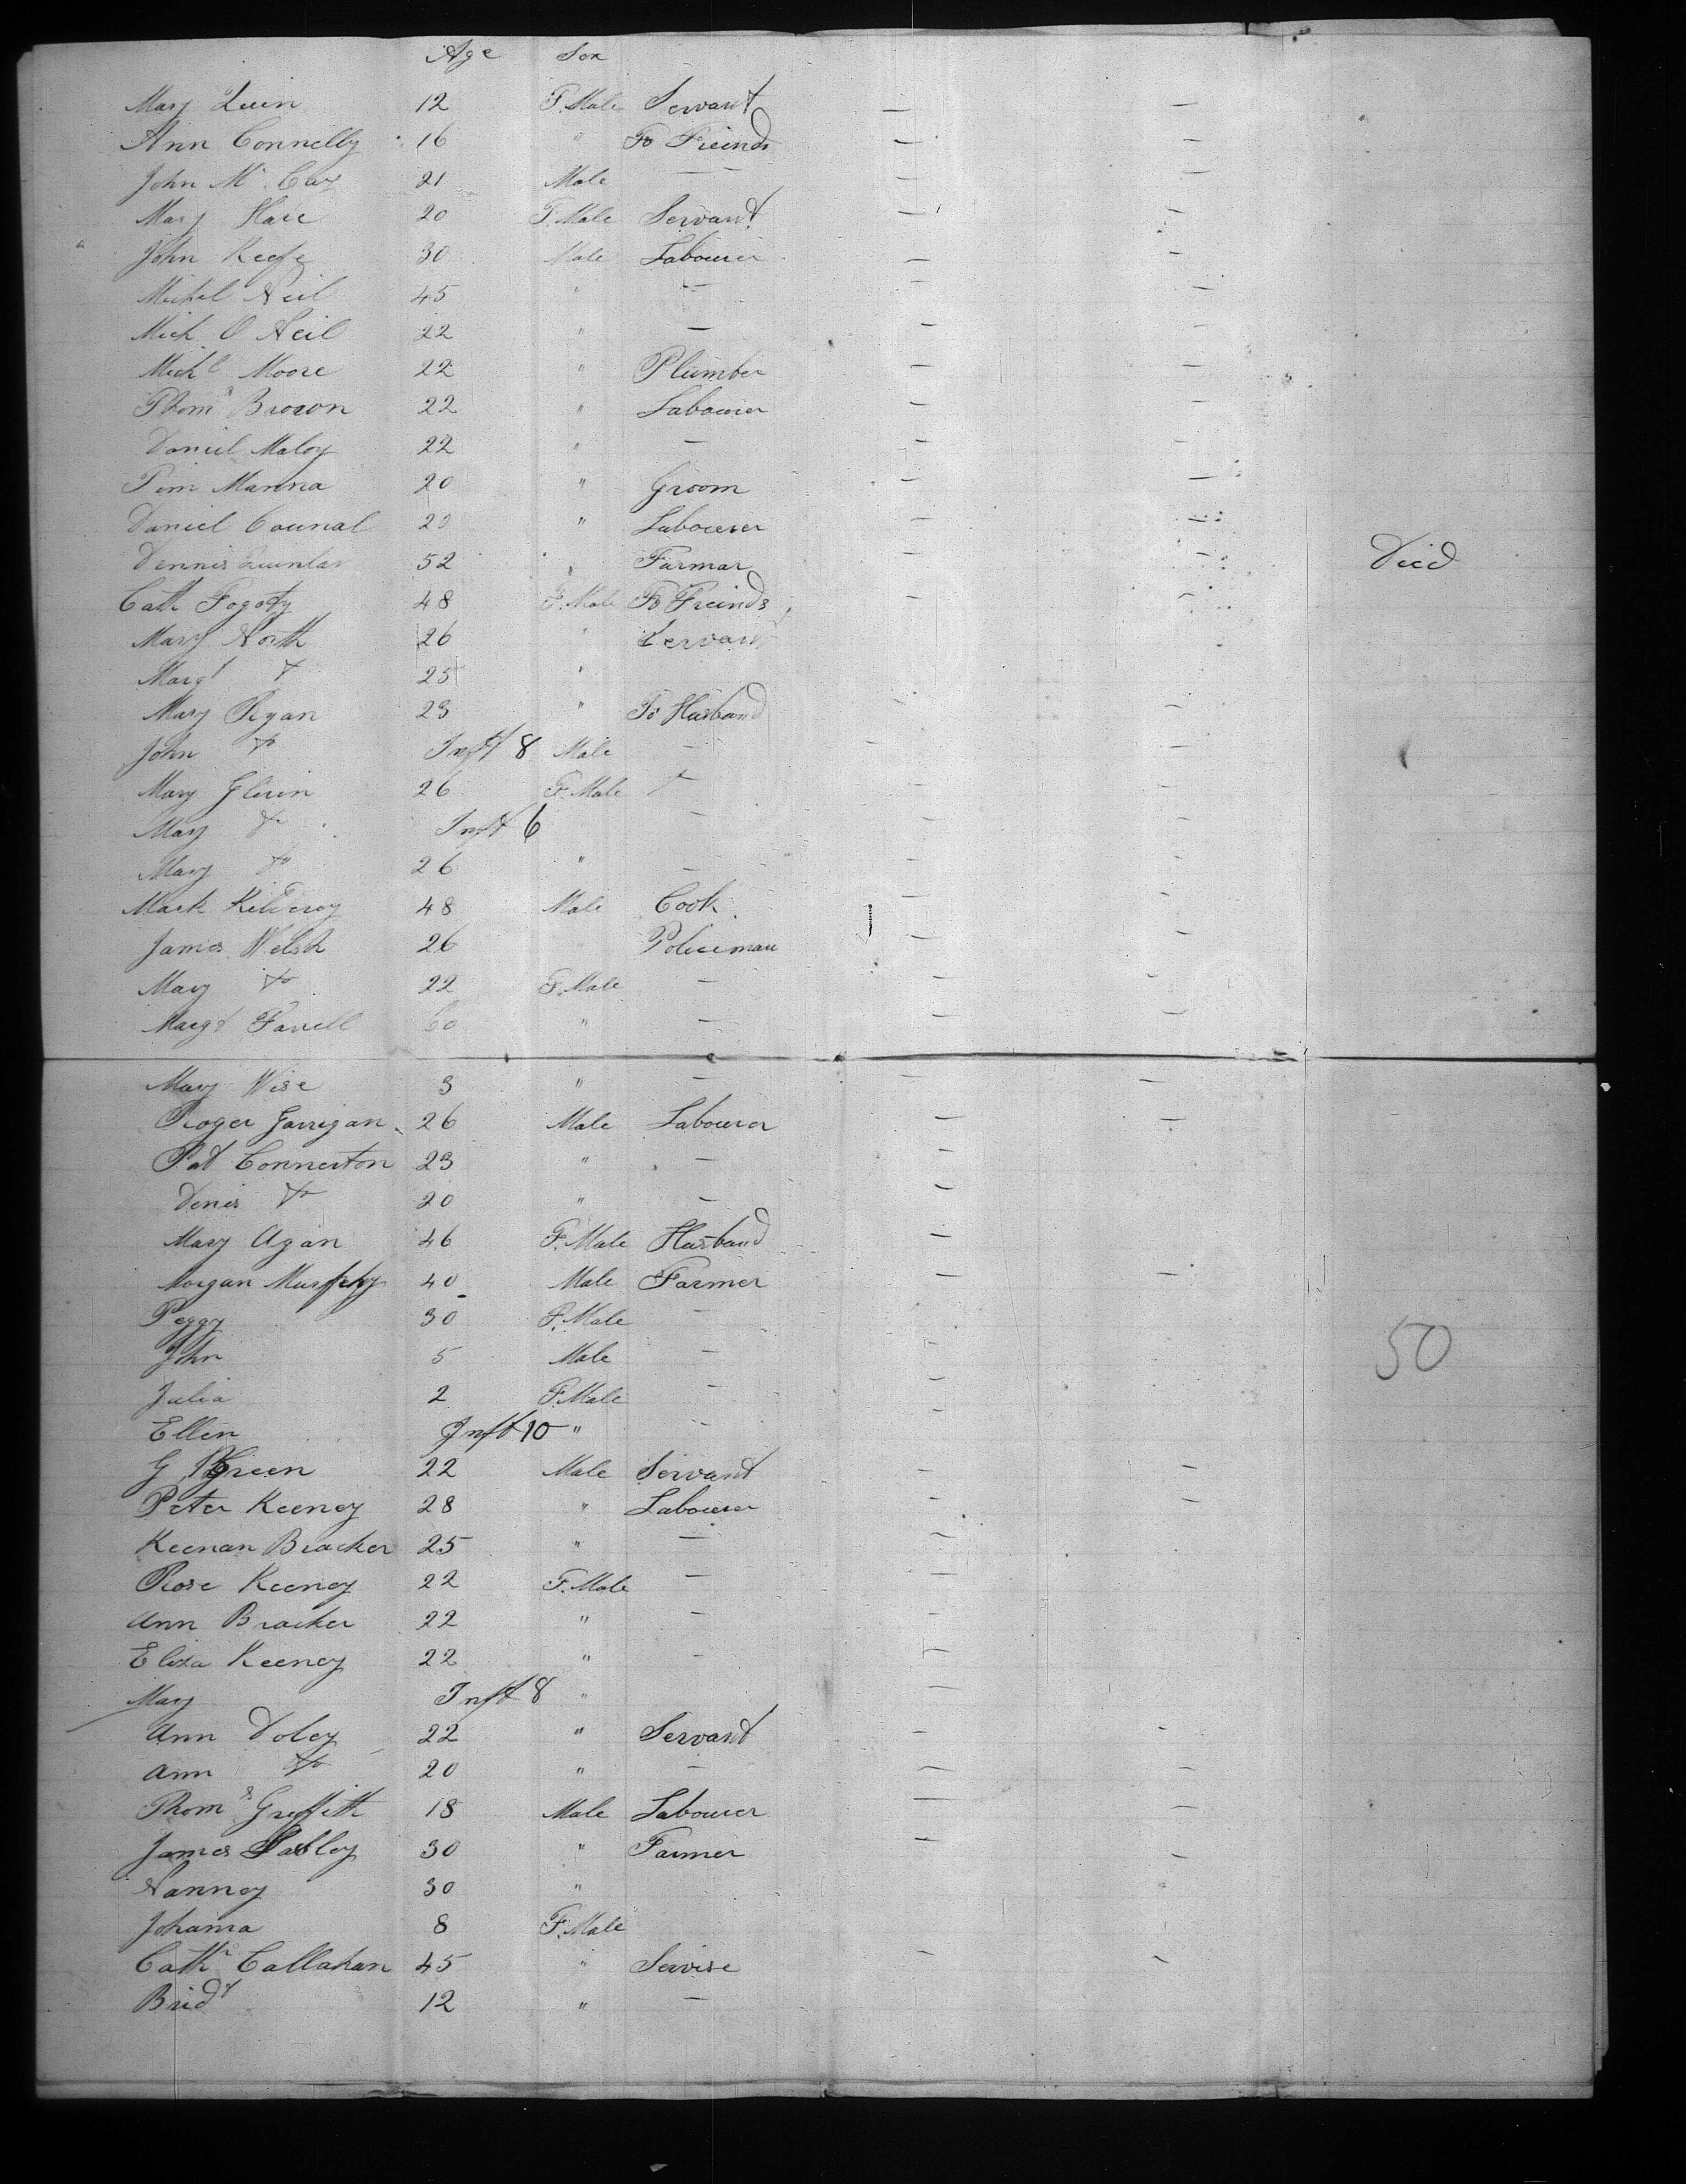 Age Sex
Mary Quin 12 F.Male Servant — —
Ann Connelly 16 " To Freinds — —
John Mc 21 Male — — — —
Mary Hare 20 F.Male Servant — —
John Keefe 30 Male Labourer — —
Michel Neil 45 " — — —
Mich O Neil 22 " — — —
Michl Moore 22 " Plumber — —
Thoms Brown 22 " Labourer — —
Daniel Maloy 22 " — — —
Tim Manna 20 " Groom — —
Daniel Counal " Labourer — —
Dennis Quinlan 52 " Farmar — — Died
Cath Fogoty 48 F.Male To Freinds — —
Mary North 26 " Servant
Margt Do 25 "
Mary Ryan 23 " To Husband — —
John Do Inft 8 Male — — —
Mary Glinn 26 F.Male — — —
Mary Do Inft 6 — — —
Mary Do 26 " — — —
Mark Kilderoy 48 Male Cook — —
James Welsh 26 " Policeman — —
Mary Do 22 F.Male — — —
Margt Farrell 60 " — — —
Mary Wise 3 " — — —
Roger Garrigan 26 Male Labourer — —
Pat Connerton 23 " — —
Denis Do 20 " — —
Mary Agan 46 F.Male Husband —
Morgan Murphy 40 Male Farmer — —
Peggy 30 F.Male — —
John 5 Male — — 50
Julia 2 F.Male — —
Ellen Inft 10 " — —
G Green 22 Male Servant — —
Peter Keeney 28 " Labourer — —
Keenan Bracker 25 " — —
Rose Keeney 22 F.Male — —
Ann Bracker 22 " — —
Eliza Keeney 22 " — —
Mary Inft 8 " —
Ann Doley 22 " Servant — —
Ann Do 20 " — — —
Thoms Griffith 18 Male Labourer — —
James 30 " Farmer — —
Nanney 30 "
Johanna 8 F.Male
Cathn Callahan 45 " Servise — —
Bridt 12 " —